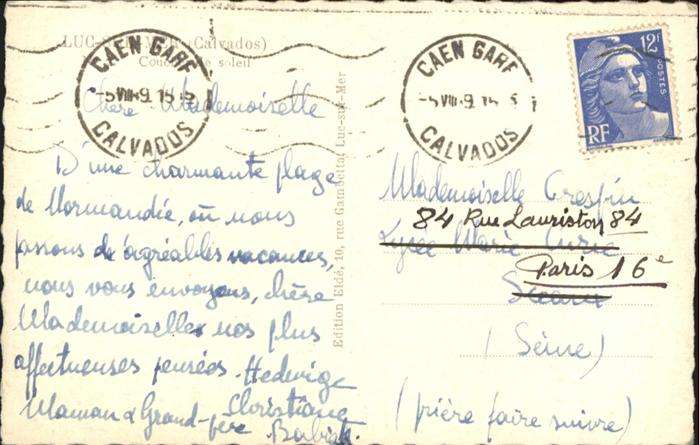 LUC-S-Mer (Calvados)
Coucher de soleil
CAEN GARE
CALVADOS
CAEN GARE
CALVADOS
12F
POSTES
RF
Chère Mademoiselle
D'une charmante plage
de Normandie, où nous
passons de agréables vacances,
nous vous envoyons, chère
Mademoiselle nos plus
affectueuses pensées. Hedwige
Christiane
Maman & Grand-père
Edition Eldé, 10, rue Gambetta, Luc-sur-Mer
Mademoiselle Crespin
84 Rue Lauriston 84
Lycée Marie Curie
Paris 16e
Sceaux
(Seine)
(prière faire suivre)